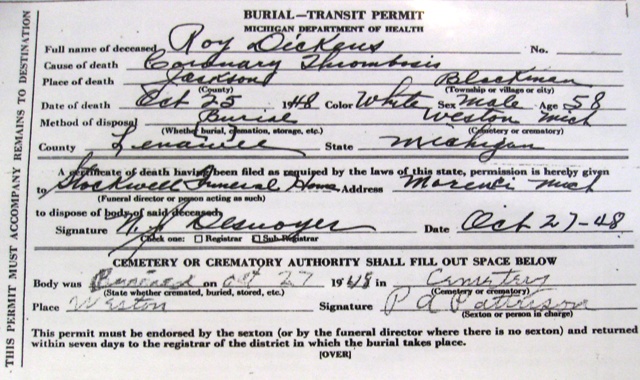 BURIAL—TRANSIT PERMIT
MICHIGAN DEPARTMENT OF HEALTH
Full name of deceased Roy Dickens No.
Cause of death Coronary Thrombosis
Place of death Jackson Blackman
(County) (Township or village or city)
Date of death Oct 25 1948 Color White Sex Male Age 58
Method of disposal Burial Weston Mich
(Whether burial, cremation, storage, etc.) (Cemetery or crematory)
County Lenawee State Michigan
A certificate of death having been filed as required by the laws of this state, permission is hereby given
to Stockwell Funeral Home Address Morenci Mich
(Funeral director or person acting as such)
to dispose of body of said deceased.
Signature Desnoyer Date Oct 27-48
Check one: Registrar Sub-Registrar
CEMETERY OR CREMATORY AUTHORITY SHALL FILL OUT SPACE BELOW
Body was Buried on Oct 27 1948 in Cemetery
(State whether cremated, buried, stored, etc.) (Cemetery or crematory)
Place Weston Signature P A Pattison
(Sexton or person in charge)
This permit must be endorsed by the sexton (or by the funeral director where there is no sexton) and returned
within seven days to the registrar of the district in which the burial takes place.
[OVER]
THIS PERMIT MUST ACCOMPANY REMAINS TO DESTINATION